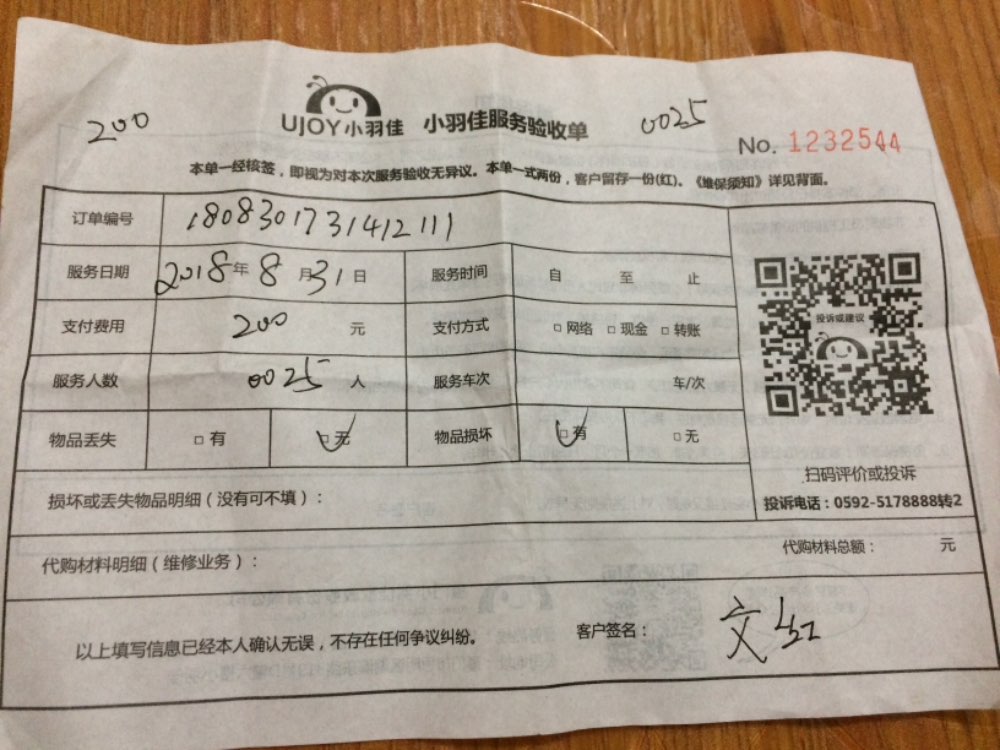 200
UJOY小羽佳 小羽佳服务验收单
0025
No. 1232544
本单一经核签，即视为对本次服务验收无异议。本单一式两份，客户留存一份(红)。《维保须知》详见背面。
订单编号 1808301731412111
服务日期 2018年8月31日 服务时间 自 至 止
支付费用 200 元 支付方式 □网络 □现金 □转账
服务人数 0025 人 服务车次 车/次
物品丢失 □有 □无 物品损坏 □有 □无
投诉或建议
扫码评价或投诉
投诉电话：0592-5178888转2
损坏或丢失物品明细（没有可不填）：
代购材料明细（维修业务）： 代购材料总额： 元
以上填写信息已经本人确认无误，不存在任何争议纠纷。 客户签名： 文红